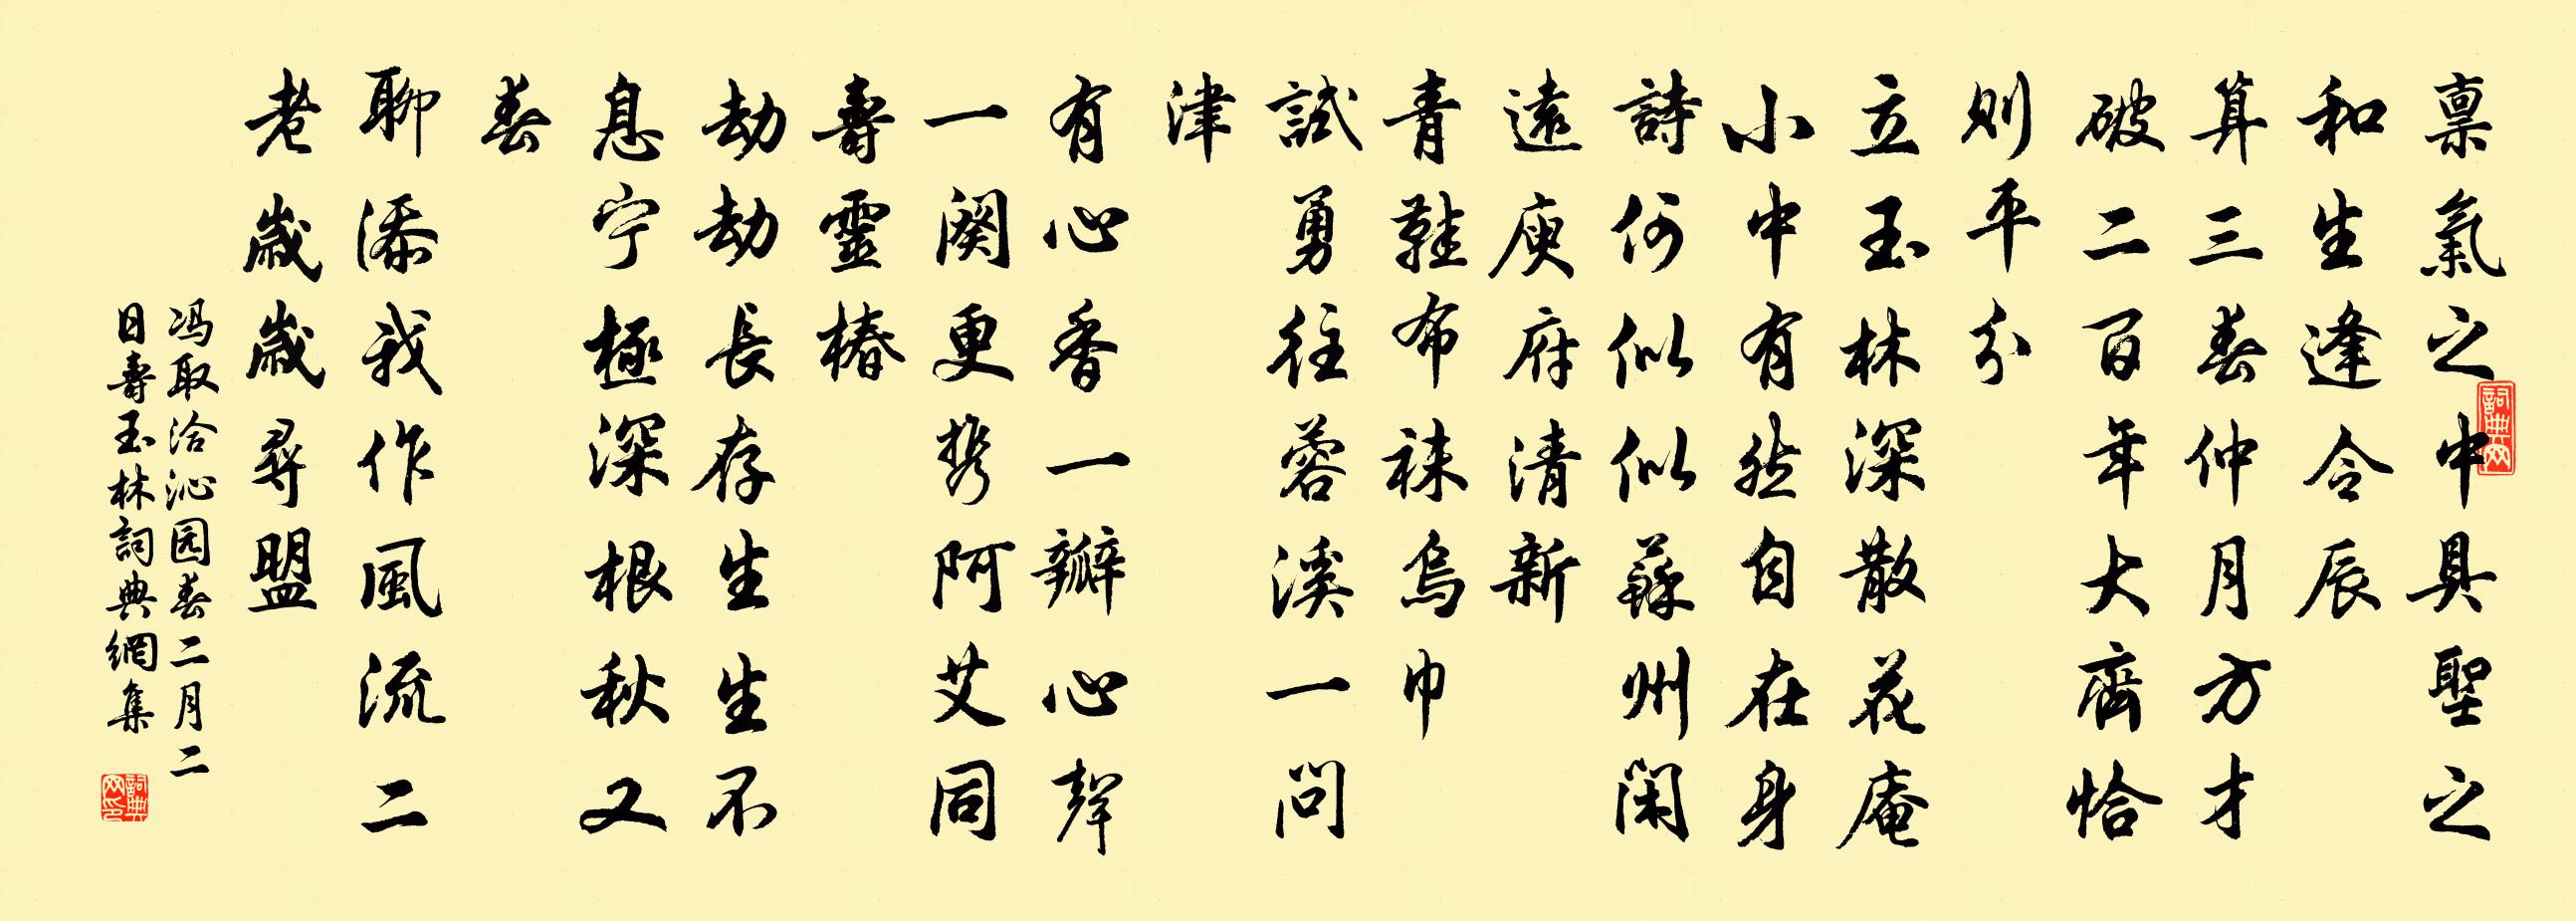 禀氣之中具聖之
和生逢令辰
算三春仲月方才
破二百年大齊恰
則平分
立玉林深散花庵
小中有然自在身
詩何似似蘇州閑
遠庾府清新
青鞋布袜烏巾
試勇往蓉溪一問
津
有心香一瓣心聲
一闋更携阿艾同
壽靈椿
劫劫長存生生不
息宁極深根秋又
春
聊添我作風流二
老歲歲尋盟
冯取洽沁园春二月二
日壽玉林詞典網集
詞典网
詞典网印